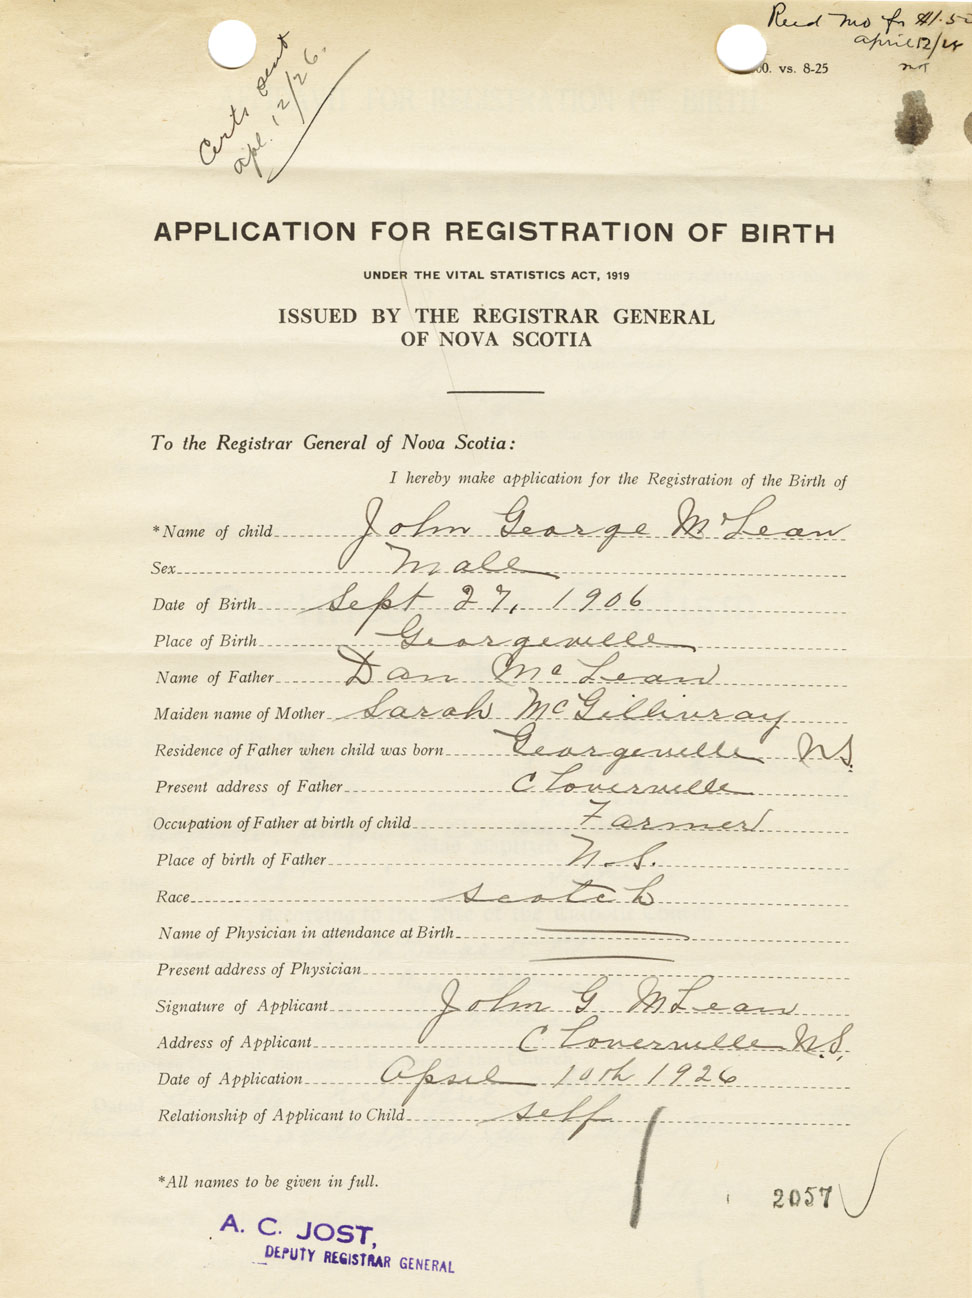 Recd MO for $1.50
April 12/26
00. vs. 8-25
Certs sent
apl. 12/26.
APPLICATION FOR REGISTRATION OF BIRTH
UNDER THE VITAL STATISTICS ACT, 1919
ISSUED BY THE REGISTRAR GENERAL
OF NOVA SCOTIA
To the Registrar General of Nova Scotia:
I hereby make application for the Registration of the Birth of
*Name of child John George McLean
Sex Male
Date of Birth Sept 27, 1906
Place of Birth Georgeville
Name of Father Dan McLean
Maiden name of Mother Sarah McGillivray
Residence of Father when child was born Georgeville NS.
Present address of Father Cloverville
Occupation of Father at birth of child Farmer
Place of birth of Father N.S.
Race Scotch
Name of Physician in attendance at Birth
Present address of Physician
Signature of Applicant John G McLean
Address of Applicant Cloverville N.S.
Date of Application April 10th 1926
Relationship of Applicant to Child self
*All names to be given in full.
2057
A. C. JOST,
DEPUTY REGISTRAR GENERAL